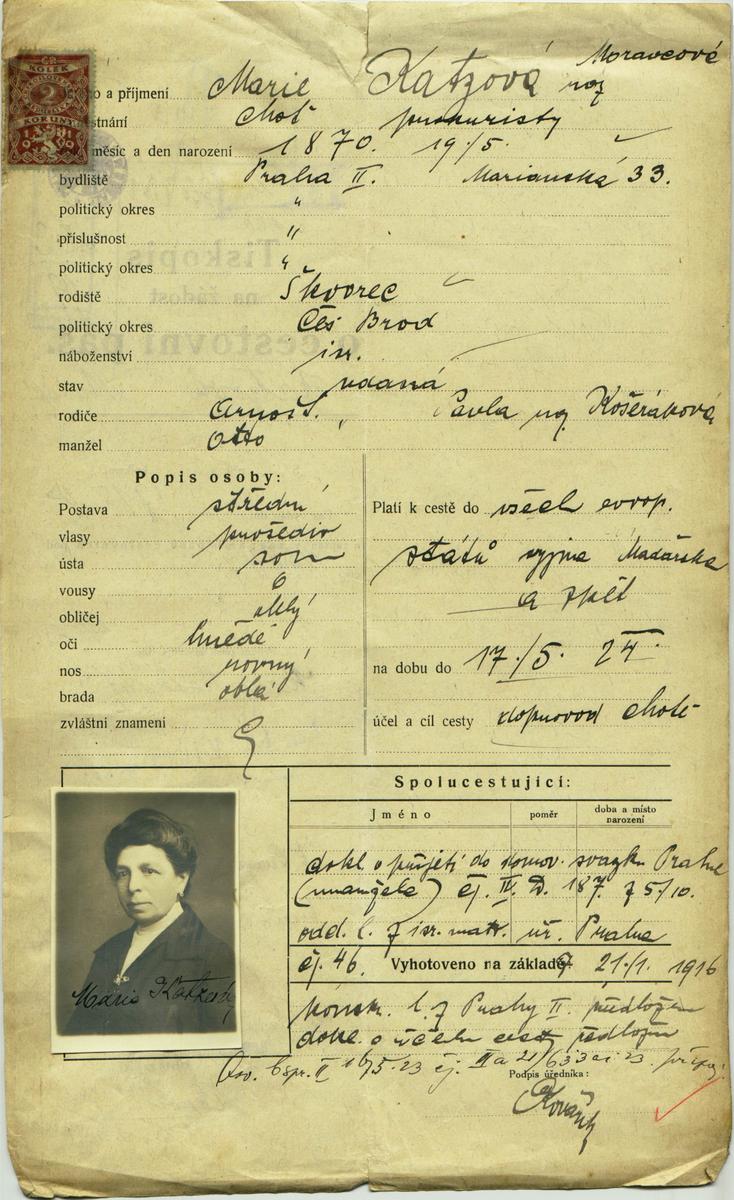 Moravcové
jméno a příjmení Marie Katzová roz
zaměstnání choť prokuristy
měsíc a den narození 1870. 19/5.
bydliště Praha II. Marianská 33.
politický okres "
příslušnost "
politický okres "
rodiště Škvorec
politický okres Čes Brod
náboženství isr.
stav vdaná
rodiče Arnošt, Pavla roz Košeráková
manžel Otto
Popis osoby:
Postava střední
vlasy prošediv
ústa soum
vousy 0
obličej oblý
oči hnědé
nos rovný
brada oblá
zvláštní znamení
Platí k cestě do všech evrop.
států vyjma Maďarska
a zpět
na dobu do 17./5. 24
účel a cíl cesty doprovod choti
Spolucestující:
Jméno poměr doba a místo narození
dokl. o přijetí do domov. svazku Prahy
(manžela) čj. IV. D. 187 z 5/10.
odd. l. z isr. mat. úř. Praha
čj. 46. Vyhotoveno na základě 21./1. 1916
konskr. l. z Prahy II. předložen
dokl. o účelu cesty předložen
Podpis úředníka:
Marie Katzová
KOLEK
2
KORUNY
1919